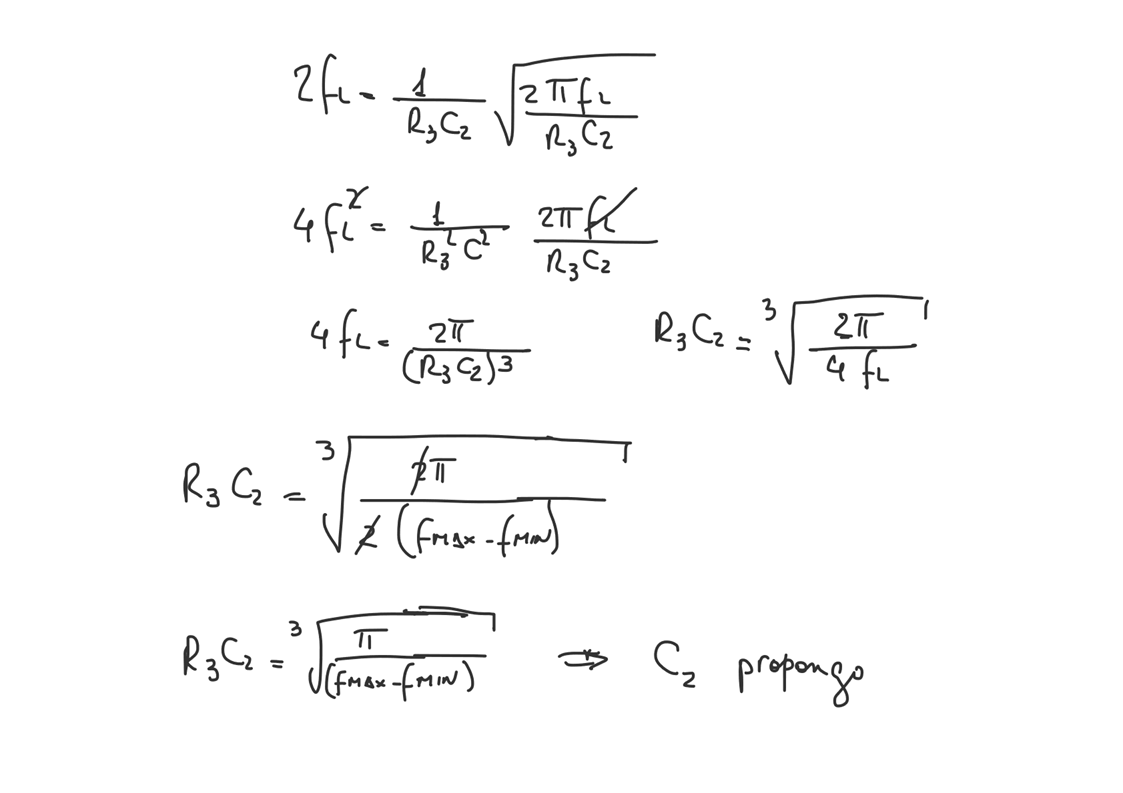 2fL = 1/(R₃C₂) √(2πfL/(R₃C₂))
4fL² = 1/(R₃²C²) 2πfL/(R₃C₂)
4fL = 2π/(R₃C₂)³ R₃C₂ = ³√(2π/(4fL))
R₃C₂ = ³√(2π/(2(fMAX - fMIN)))
R₃C₂ = ³√(π/(fMAX - fMIN)) ⇒ C₂ propongo